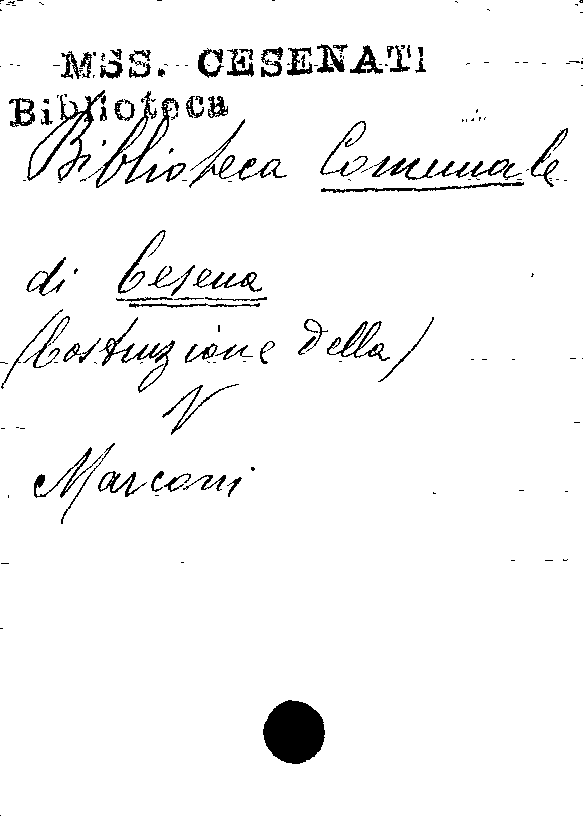 MSS. CESENATI
Biblioteca
Biblioteca Comunale
di Cesena
(Costruzione della)
V
Marconi